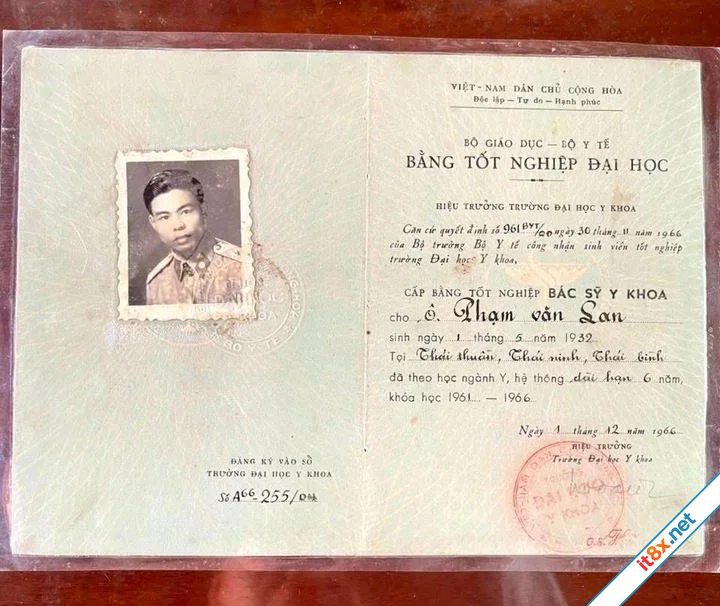 VIỆT - NAM DÂN CHỦ CỘNG HÒA
Độc lập — Tự do — Hạnh phúc
BỘ GIÁO DỤC — BỘ Y TẾ
BẰNG TỐT NGHIỆP ĐẠI HỌC
HIỆU TRƯỞNG TRƯỜNG ĐẠI HỌC Y KHOA
Căn cứ quyết định số 961 BYT/QĐ ngày 30 tháng 11 năm 1966
của Bộ trưởng Bộ Y tế công nhận sinh viên tốt nghiệp
trường Đại học Y khoa.
CẤP BẰNG TỐT NGHIỆP BÁC SỸ Y KHOA
cho Ô. Phạm văn Lan
sinh ngày 1 tháng 5 năm 1932
Tại Thái thuần, Thái ninh, Thái bình
đã theo học ngành Y, hệ thống dài hạn 6 năm,
khóa học 1961 — 1966
Ngày 1 tháng 12 năm 1966
HIỆU TRƯỞNG
Trường Đại học Y khoa
ĐẠI HỌC
Y KHOA
ĐĂNG KÝ VÀO SỔ
TRƯỜNG ĐẠI HỌC Y KHOA
Số A66-255/
it8x.net